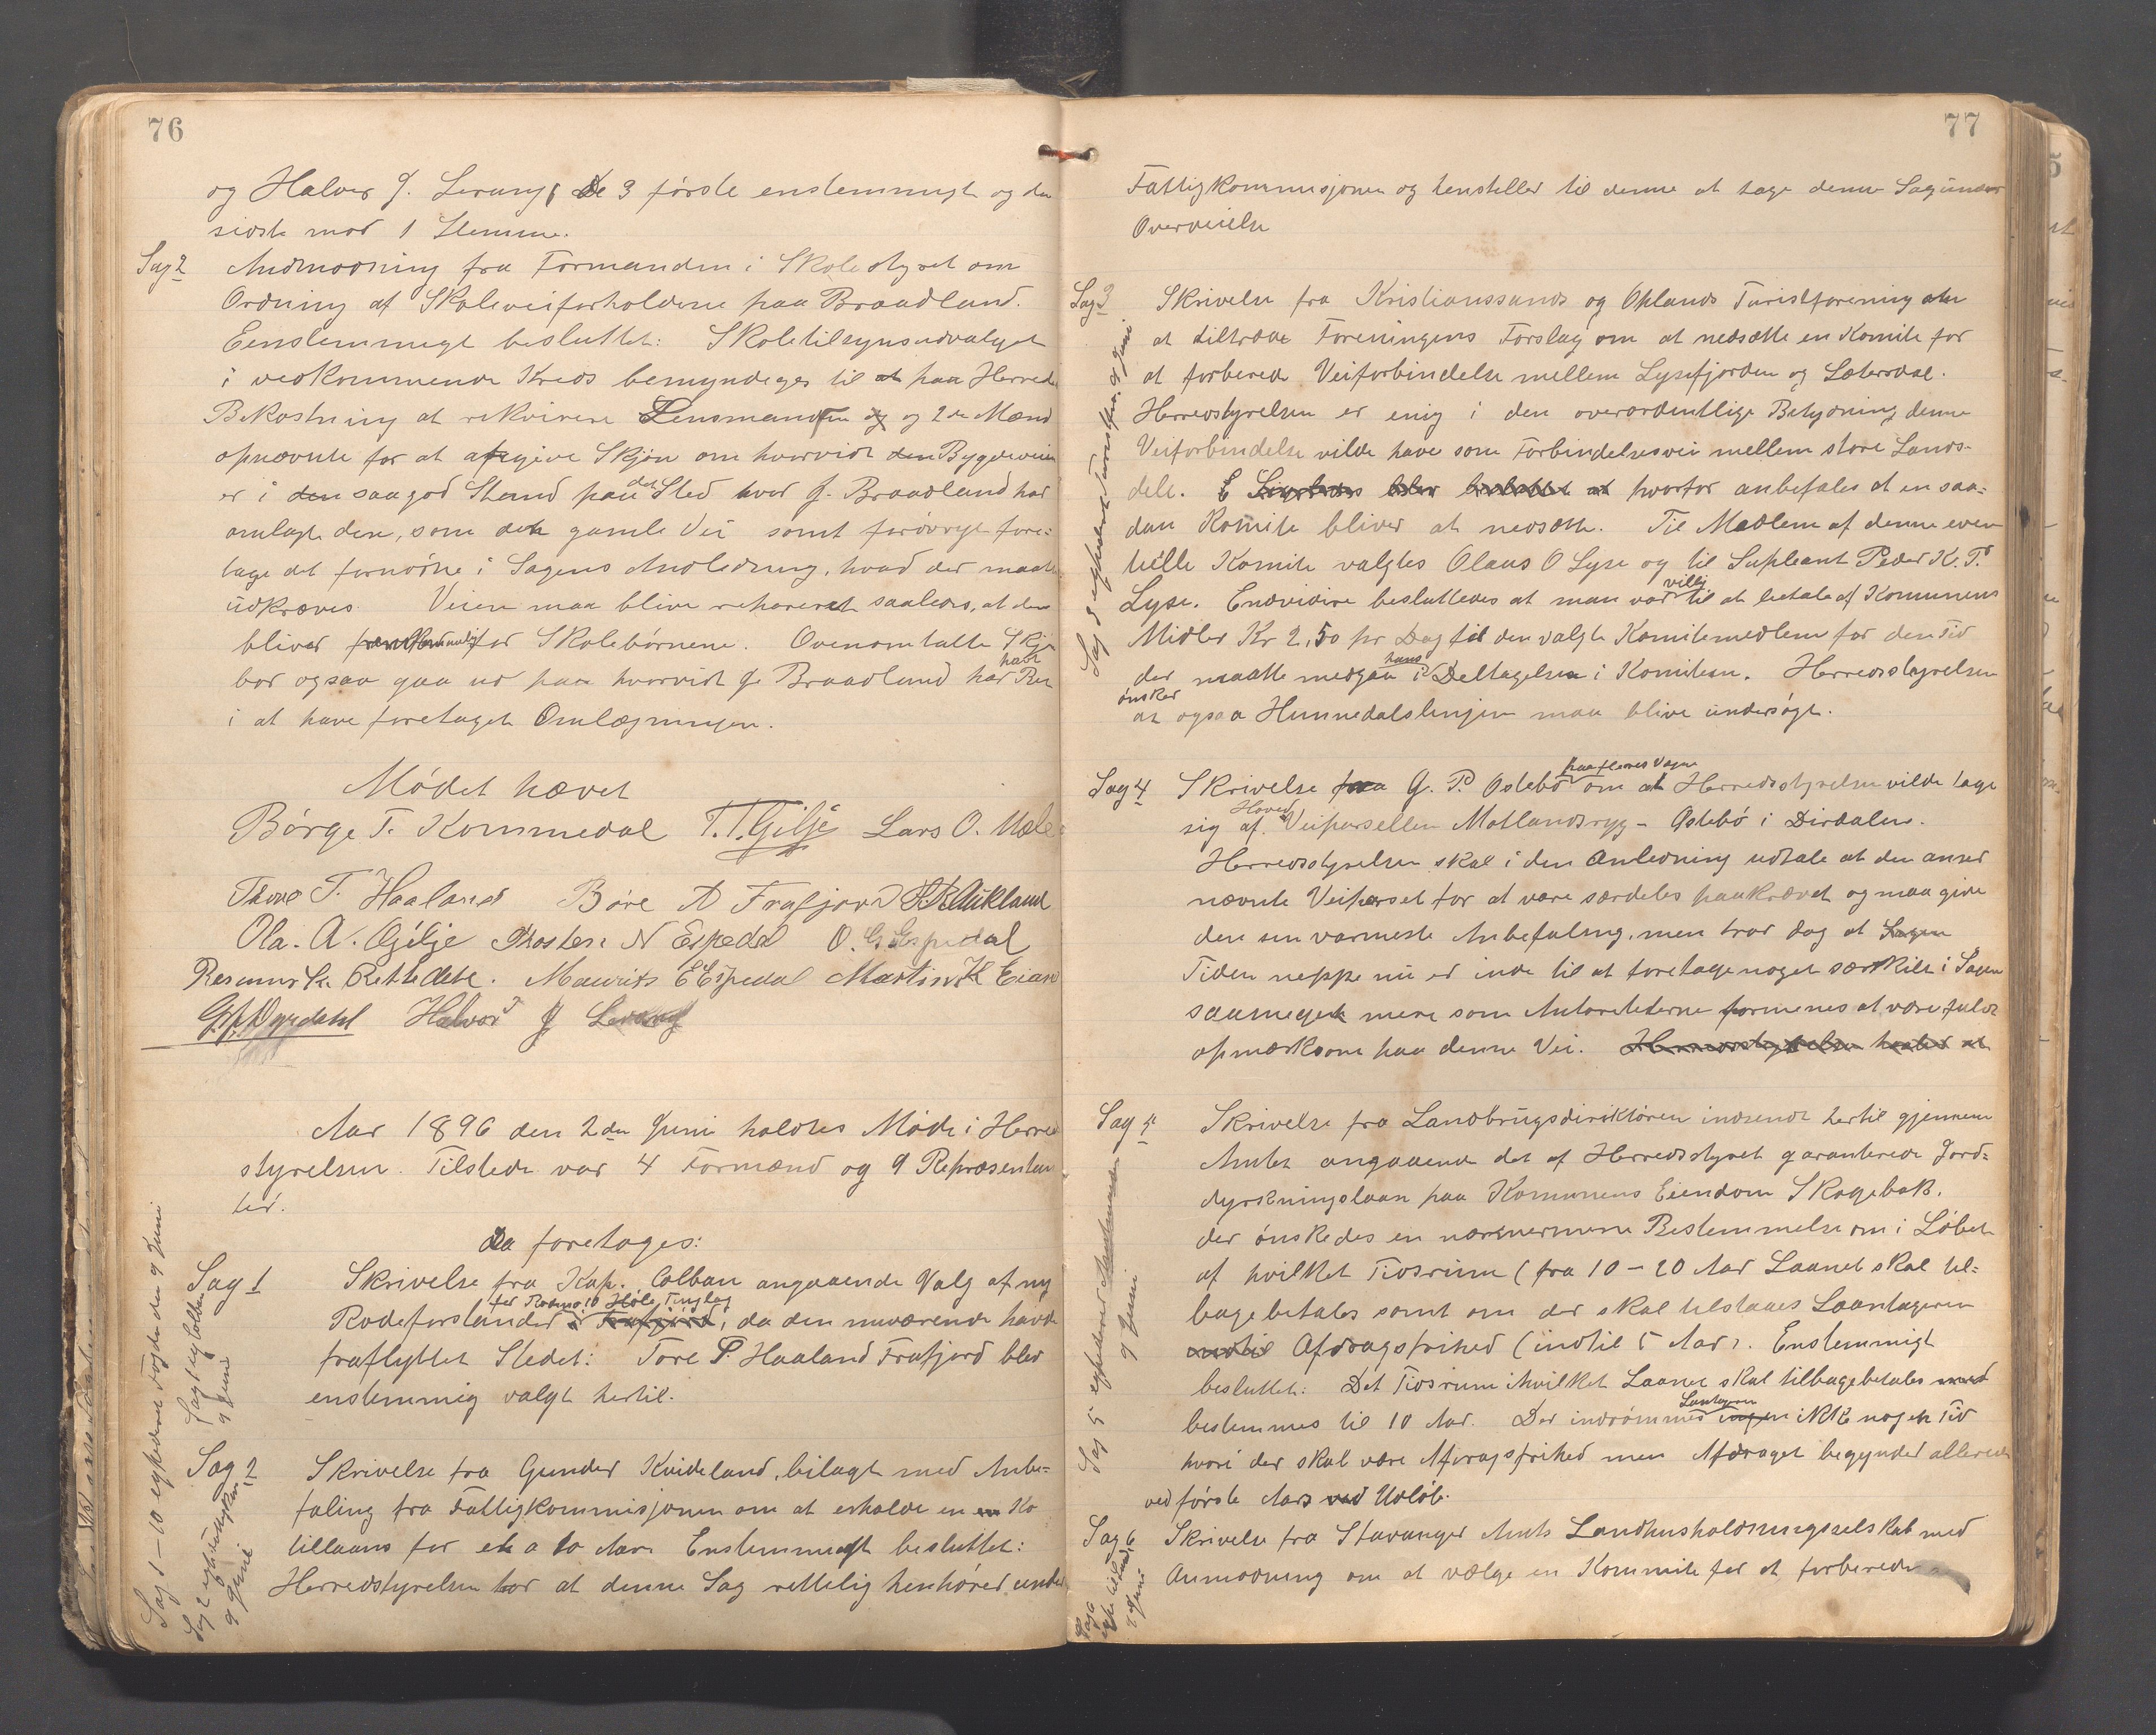 76
og Halvor J. Lerang, De 3 første enstemmigt og den
sidste mod 1 Stemme.
Sag 2 Andmodning fra Formanden i Skolestyret om
Ordning af Skoleveiforholdene paa Braadland.
Eenstemmigt besluttet: Skoletilsynsudvalget
i vedkommende Kreds bemyndiges til at paa Herreds
Bekostning at rekvirere Lensmanden og og 2de Mænd
opnævnte for at afgive Skjøn om hvorvidt den Bygdeveien
er i den saa god Stand paa det Sted hvor J. Braadland har
omlagt den, som den gamle Vei samt forøvrigt fore=
tage det fornødne i Sagens Andledning, hvad der maatte
udkræves. Veien maa blive repareret saaledes, at den
bliver fremkommelig for Skolebørnene. Ovenomtalte Skjøn
bør ogsaa gaa ud paa hvorvidt J. Braadland har havt Ret
i at have foretaget Omlægningen.
Mødet hævet
Børge T. Kommedal T. T. Gilje Lars O. Mæle
Thore T. Haaland Børe A Frafjord Aukland
Ola. A. Gilje Thosten N Espedal O. G. Espedal
Rasmus Rettedal. Mauritz E Espedal Martin K Eiane
Dyrdahl Halvor J Lerang
Aar 1896 den 2den Juni holdtes Møde i Herreds
styrelsen. Tilstede var 4 Formænd og 9 Repræsentan
ter.
Da foretoges:
Sag 1 Skrivelse fra Kap. Colban angaaende Valg af ny
for Rode no 10 Høle Tinglag
Rodeforstander i Frafjord, da den nuværende havde
fraflyttet Stedet: Tore P. Haaland Frafjord blev
enstemmig valgt hertil.
Sag 2 Skrivelse fra Gunder Kvideland, bilagt med Anbe=
faling fra Fattigkommisjonen om at erholde en en Ko
tillaans for et a to Aar. Enstemmigt besluttet:
Herredstyrelsen tror at denne Sag rettelig henhører under
Sag 1 – 10 expederet Fogden den 9 Juni
Sag 1 exp Colban
9 Juni
Sag 2 exp Fattigkom
9 Juni
77
Fattigkommisjonen og henstiller til denne at tage denne Sag under
Overveielse
Sag 3 Skrivelse fra Kristianssands og Oplands Turistforening om
at tiltræde Foreningens Forslag om at nedsætte en Komite for
at forberede Veiforbindelse mellem Lysefjorden og Sætersdal.
Herredstyrelsen er enig i den overordentlige Betydning denne
Veiforbindelse vilde have som Forbindelsesvei mellem store Lands-
dele. hvorfor anbefales at en saa=
dan Komite bliver at nedsætte. Til Medlem af denne even
tuelle Komite valgtes Olaus O Lyse og til Supleant Peder K. T.
Lyse. Endvidere besluttedes at man var villig til at betale af Komunens
Midler Kr 2,50 pr Dag til den valgte Komitemedlem for den Tid
der maatte medgaa i hans Deltagelsen i Komiteen. Herredsstyrelsen
ønsker
at ogsaa Hunnedalslinjen maa blive undersøgt.
Sag 4 Skrivelse fra G. P. Østebø paa fleres Vegne om at Herredsstyrelsen vilde tage
sig af Hoved Veiparsellen Motlandsryg – Østebø i Dirdalen.
Herredsstyrelsen skal i den Anledning udtale at den anser
nævnte Veiparsel for at være særdeles paakrævet og maa give
den sin varmeste Anbefaling, men tror dog at Sagen
Tiden neppe nu er inde til at foretage noget særskilt i Sagen
saameget mere som Autoriteterne formenes at være fuldt
opmærksom paa denne Vei. Herredsstyrelsen haaber at
Sag 5 Skrivelse fra Landbrugsdirektøren indsendt hertil gjennem
Amtet angaaende det af Herredsstyret garanterede Jord=
dyrkningslaan paa Komunens Eiendom Skogebak.
der ønskedes en nærmermere Bestemmelse om i Løbet
af hvilket Tidsrum (fra 10 – 20 Aar Laanet skal til=
bagebetales samt om der skal tilstaaes Laantageren
indtil Afdragsfrihed (indtil 5 Aar). Enstemmigt
besluttet: Det Tidsrum i hvilket Laanet skal tilbagebetales med
bestemmes til 10 Aar. Der indrømmes Laantageren ingen ikke nogen Tid
hvori der skal være Afdragsfrihed men Afdraget begynder allerede
ved første Aars ved Udløb.
Sag 6 Skrivelse fra Stavanger Amts Landhusholdningsselskab med
Anmodning om at vælge en Kommite for at forberede
Sag 3 expederet Turistfor. 9 Juni.
Sag 5 expederes
9 Juni
Sag 6
9 Juni